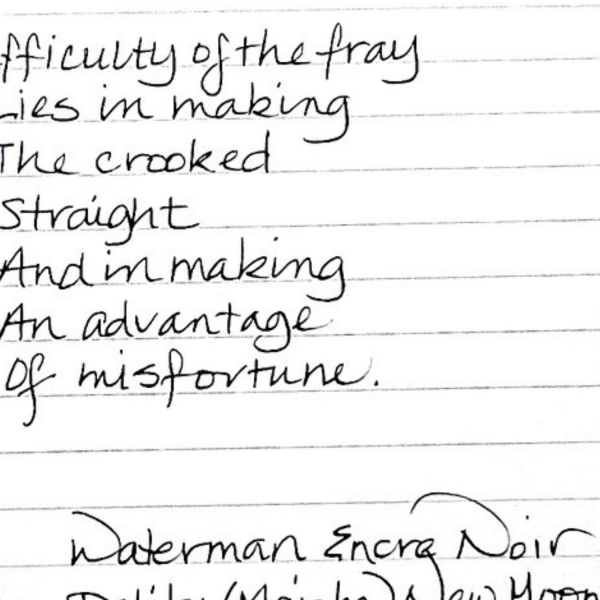 fficulty of the fray
Lies in making
The crooked
Straight
And in making
An advantage
Of misfortune.
Waterman Encre Noir
New Moon